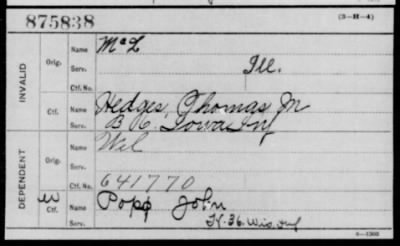 875838 (3—H—4)
INVALID
Orig. Name McL
Serv. Ill.
Ctf. No.
Ctf. Name Hedges, Thomas M
Serv. B 6, Iowa Inf
DEPENDENT
Orig. Name Wel
Serv.
Ctf. No. 641770
W Ctf. Name Popp John
Serv. K. 36. Wis. Inf
6—1300